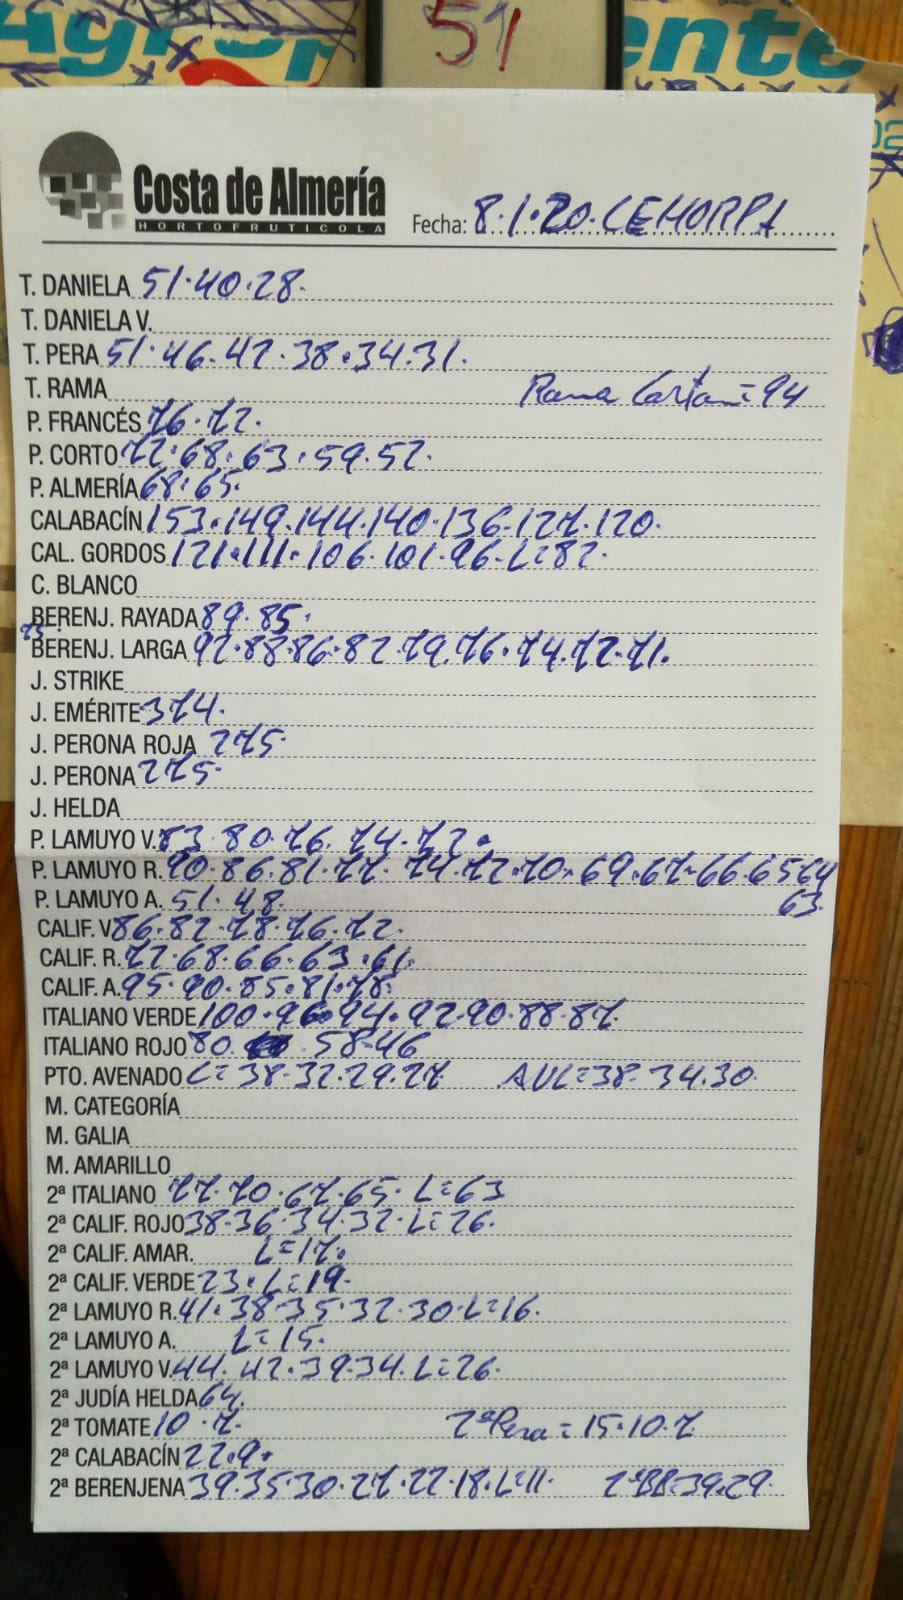 51
Costa de Almería
HORTOFRUTICOLA
Fecha: 8.1.20. CEHORPA
T. DANIELA 51.40.28.
T. DANIELA V.
T. PERA 51.46.42.38.34.31.
T. RAMA Rama Cartón=94
P. FRANCÉS 76.72.
P. CORTO 72.68.63.59.52.
P. ALMERÍA 68.65.
CALABACÍN 153.149.144.140.136.127.120.
CAL. GORDOS 121.111.106.101.96.L=82.
C. BLANCO
BERENJ. RAYADA 89.85.
BERENJ. LARGA 92.88.86.82.79.76.74.72.71.
J. STRIKE
J. EMÉRITE 374.
J. PERONA ROJA 275.
J. PERONA 275.
J. HELDA
P. LAMUYO V. 83.80.76.74.73.
P. LAMUYO R. 90.86.81.77.74.72.70.69.67.66.65 64
P. LAMUYO A. 51.48. 63.
CALIF. V. 86.82.78.76.72.
CALIF. R. 72.68.66.63.61.
CALIF. A. 95.90.85.81.78.
ITALIANO VERDE 100.96.94.92.90.88.87.
ITALIANO ROJO 80. 58.46
PTO. AVENADO L=38.32.29.27 AVL=38.34.30.
M. CATEGORÍA
M. GALIA
M. AMARILLO
2ª ITALIANO 77.70.67.65.L=63
2ª CALIF. ROJO 38.36.34.32.L=26.
2ª CALIF. AMAR. L=17.
2ª CALIF. VERDE 23.L=19.
2ª LAMUYO R. 41.38.35.32.30.L=16.
2ª LAMUYO A. L=15.
2ª LAMUYO V. 44.42.39.34.L=26.
2ª JUDÍA HELDA 64.
2ª TOMATE 10.7. 2ªPera=15.10.7
2ª CALABACÍN 22.9.
2ª BERENJENA 39.35.30.27.22.18.L=11 2ªBB.39.29.